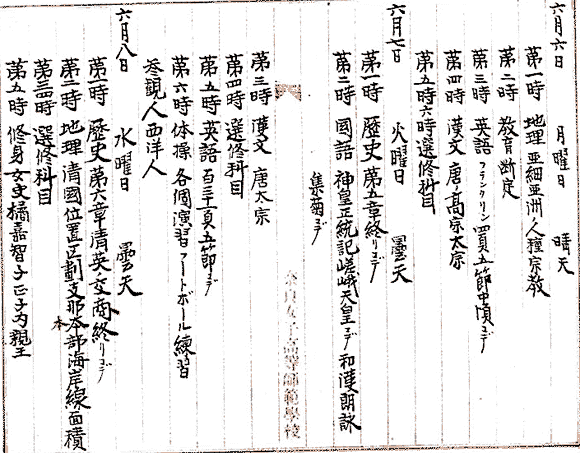 六月六日 月曜日 晴天
第一時 地理 亜細亜洲ノ人種宗教
第二時 教育 断定
第三時 英語 フランクリン 四頁五節中頃マデ
第四時 漢文 唐ノ高宗太宗
第五時六時 選修科目
六月七日 火曜日 曇天
第一時 歴史 第五章終リマデ
第二時 國語 神皇正統記嵯峨天皇マデ 和漢朗詠
集菊マデ
第三時 漢文 唐太宗
第四時 選修科目
第五時 英語 百三十頁五節マデ
第六時 体操 各個演習フートボール練習
参觀人 西洋人
六月八日 水曜日 曇天
第一時 歴史 第六章清英交商終リマデ
第二時 地理 清國位置区劃支那本部海岸線面積
本
第三四時 選修科目
第五時 修身 女史橘嘉智子正子内親王
奈良女子高等師範學校